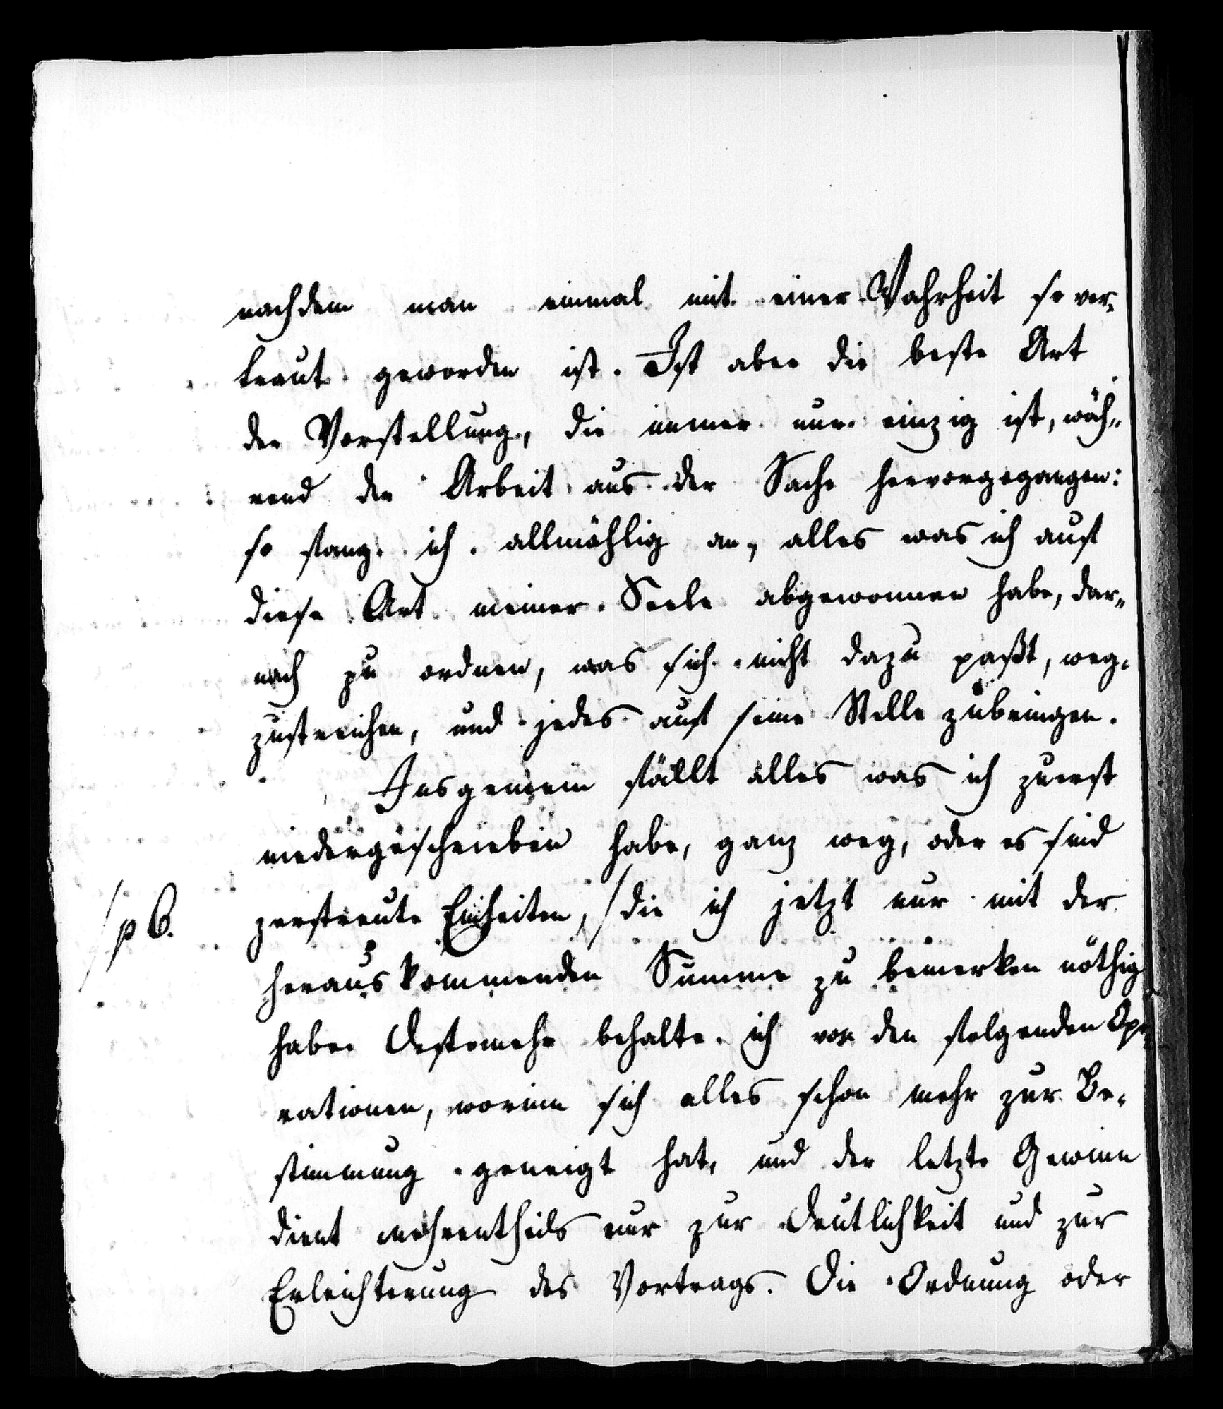 nachdem man einmal mit einer Wahrheit so ver-
traut geworden ist. Ist aber die beste Art
der Vorstellung, die immer nur einzig ist, wäh-
rend der Arbeit aus der Sache hervorgegangen:
so fang ich allmählig an, alles was ich auf
diese Art meiner Seele abgewonnen habe, dar-
nach zu ordnen, was sich nicht dazu paßt, weg-
zustreichen, und jedes auf seine Stelle zubringen.
Insgemein fällt alles was ich zuerst
niedergeschrieben habe, ganz weg, oder es sind
zerstreute Einheiten, / die ich jetzt nur mit der
/ p 6.
herauskommenden Summe zu bemerken nöthig
habe. Destomehr behalte ich von den folgenden Ope
rationen, worinn sich alles schon mehr zur Be-
stimmung geneigt hat, und der letzte Gewinn
dient mehrentheils nur zur Deutlichkeit und zur
Erleichterung des Vortrags. Die Ordnung oder